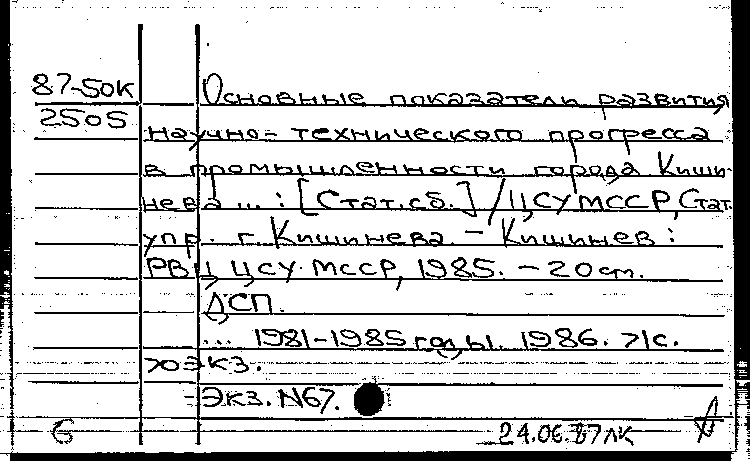 87-50К
2505
Основные показатели развития
научно-технического прогресса
в промышленности города Киши-
нева ... : [Стат. сб.] / ЦСУ МССР, Стат.
упр. г. Кишинева. - Кишинев :
РВЦ ЦСУ МССР, 1985. - 20 см.
ДСП.
... 1981-1985 годы. 1986. 71с.
70экз.
Экз. N67.
24.06.87лк